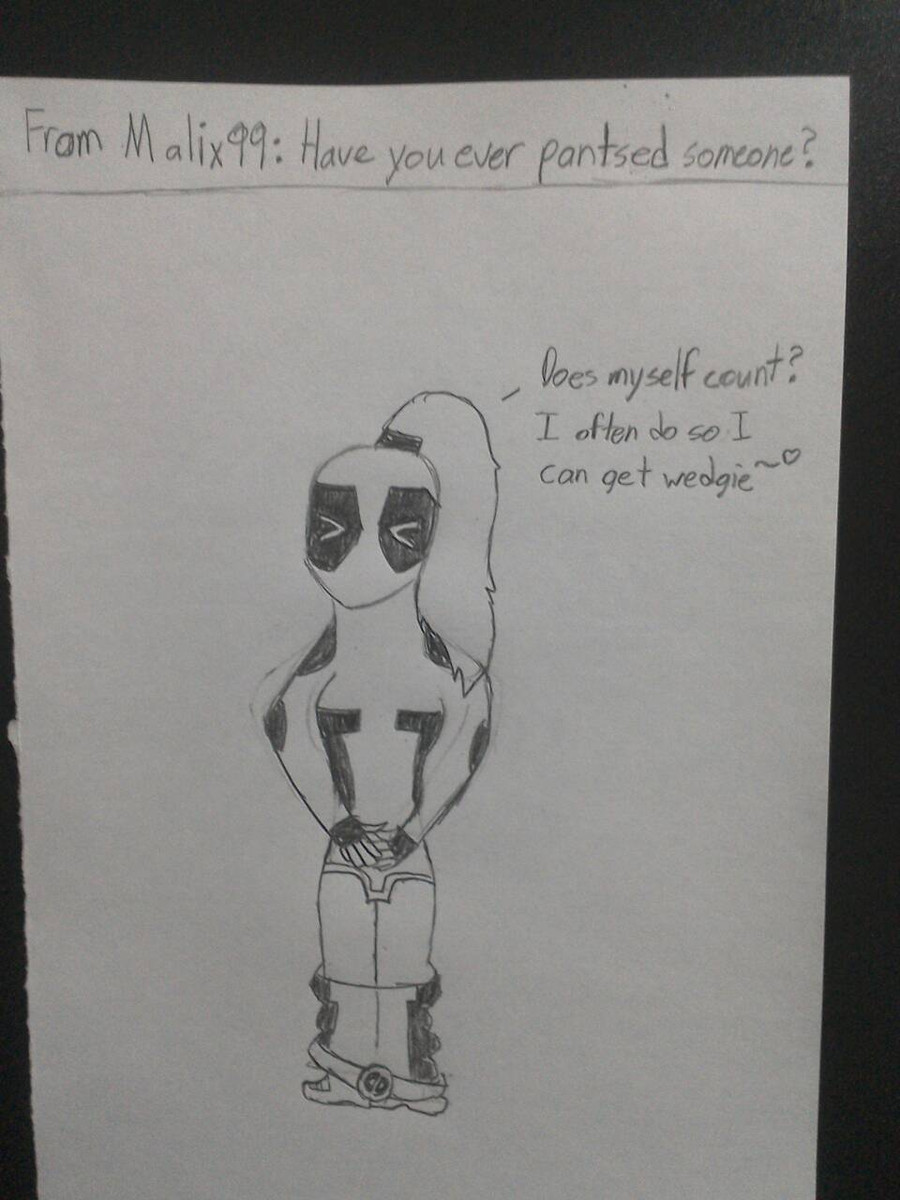 From Malix99: Have you ever pantsed someone?
Does myself count?
I often do so I
can get wedgie~♡